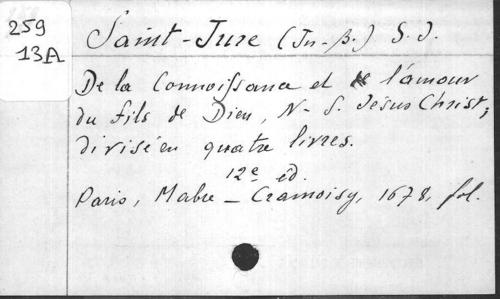 259
13A
Saint-Jure (Jn-B.) S.J.
De la Connoissance et de l'amour
du fils de Dieu, N-S. Jésus Christ,
divisé en quatre livres.
12e éd.
Paris, Mabre-Cramoisy, 1678, fol.